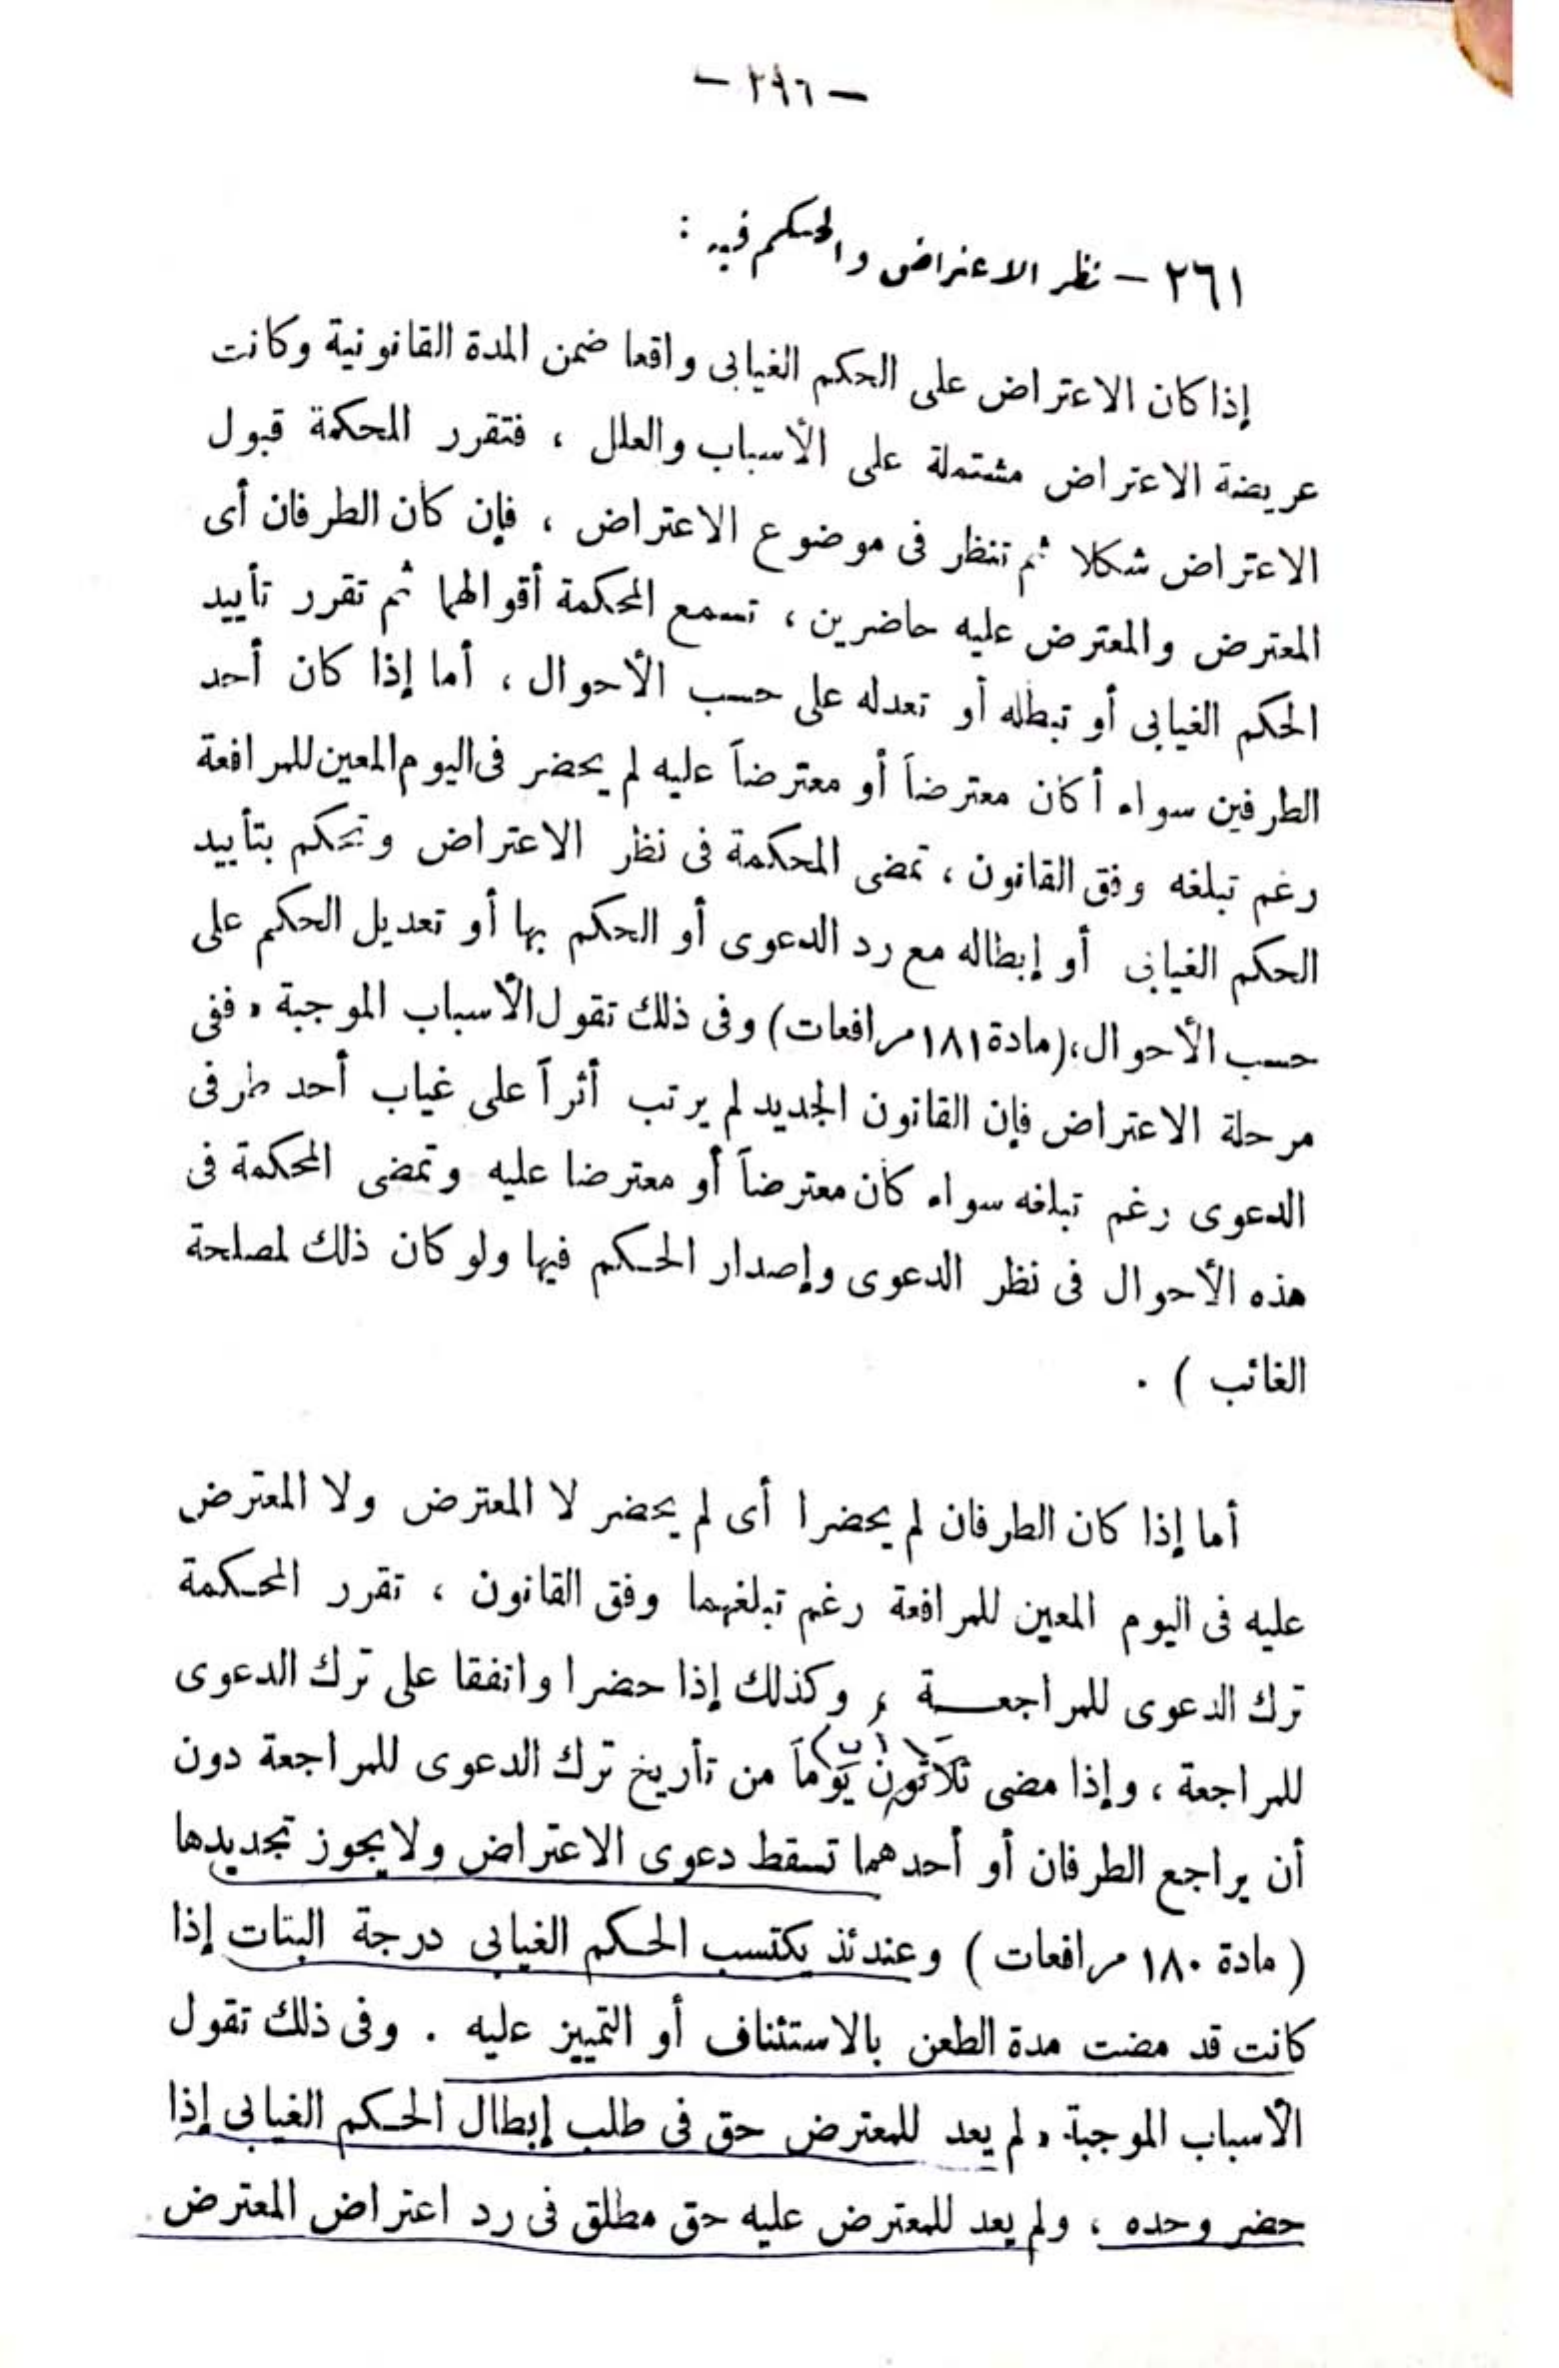 — ٢٩٦ —
٢٦١ — نظر الاعتراض والحكم فيه :
إذا كان الاعتراض على الحكم الغيابى واقعا ضمن المدة القانونية وكانت
عريضة الاعتراض مشتملة على الأسباب والعلل ، فتقرر المحكمة قبول
الاعتراض شكلا ثم تنظر فى موضوع الاعتراض ، فإن كان الطرفان أى
المعترض والمعترض عليه حاضرين ، تسمع المحكمة أقوالهما ثم تقرر تأييد
الحكم الغيابى أو تبطله أو تعدله على حسب الأحوال ، أما إذا كان أحد
الطرفين سواء أكان معترضاً أو معترضاً عليه لم يحضر فى اليوم المعين للمرافعة
رغم تبلغه وفق القانون ، تمضى المحكمة فى نظر الاعتراض وتحكم بتأييد
الحكم الغيابى أو إبطاله مع رد الدعوى أو الحكم بها أو تعديل الحكم على
حسب الأحوال، (مادة ١٨١ مرافعات) وفى ذلك تقول الأسباب الموجبة « ففى
مرحلة الاعتراض فإن القانون الجديد لم يرتب أثراً على غياب أحد طرفى
الدعوى رغم تبلغه سواء كان معترضاً أو معترضا عليه وتمضى المحكمة فى
هذه الأحوال فى نظر الدعوى وإصدار الحكم فيها ولو كان ذلك لمصلحة
الغائب ) .
أما إذا كان الطرفان لم يحضرا أى لم يحضر لا المعترض ولا المعترض
عليه فى اليوم المعين للمرافعة رغم تبلغهما وفق القانون ، تقرر المحكمة
ترك الدعوى للمراجعة ، وكذلك إذا حضرا واتفقا على ترك الدعوى
للمراجعة ، وإذا مضى ثلاثون يوماً من تأريخ ترك الدعوى للمراجعة دون
أن يراجع الطرفان أو أحدهما تسقط دعوى الاعتراض ولا يجوز تجديدها
( مادة ١٨٠ مرافعات ) وعندئذ يكتسب الحكم الغيابى درجة البتات إذا
كانت قد مضت مدة الطعن بالاستئناف أو التمييز عليه . وفى ذلك تقول
الأسباب الموجبة « لم يعد للمعترض حق فى طلب إبطال الحكم الغيابى إذا
حضر وحده ، ولم يعد للمعترض عليه حق مطلق فى رد اعتراض المعترض